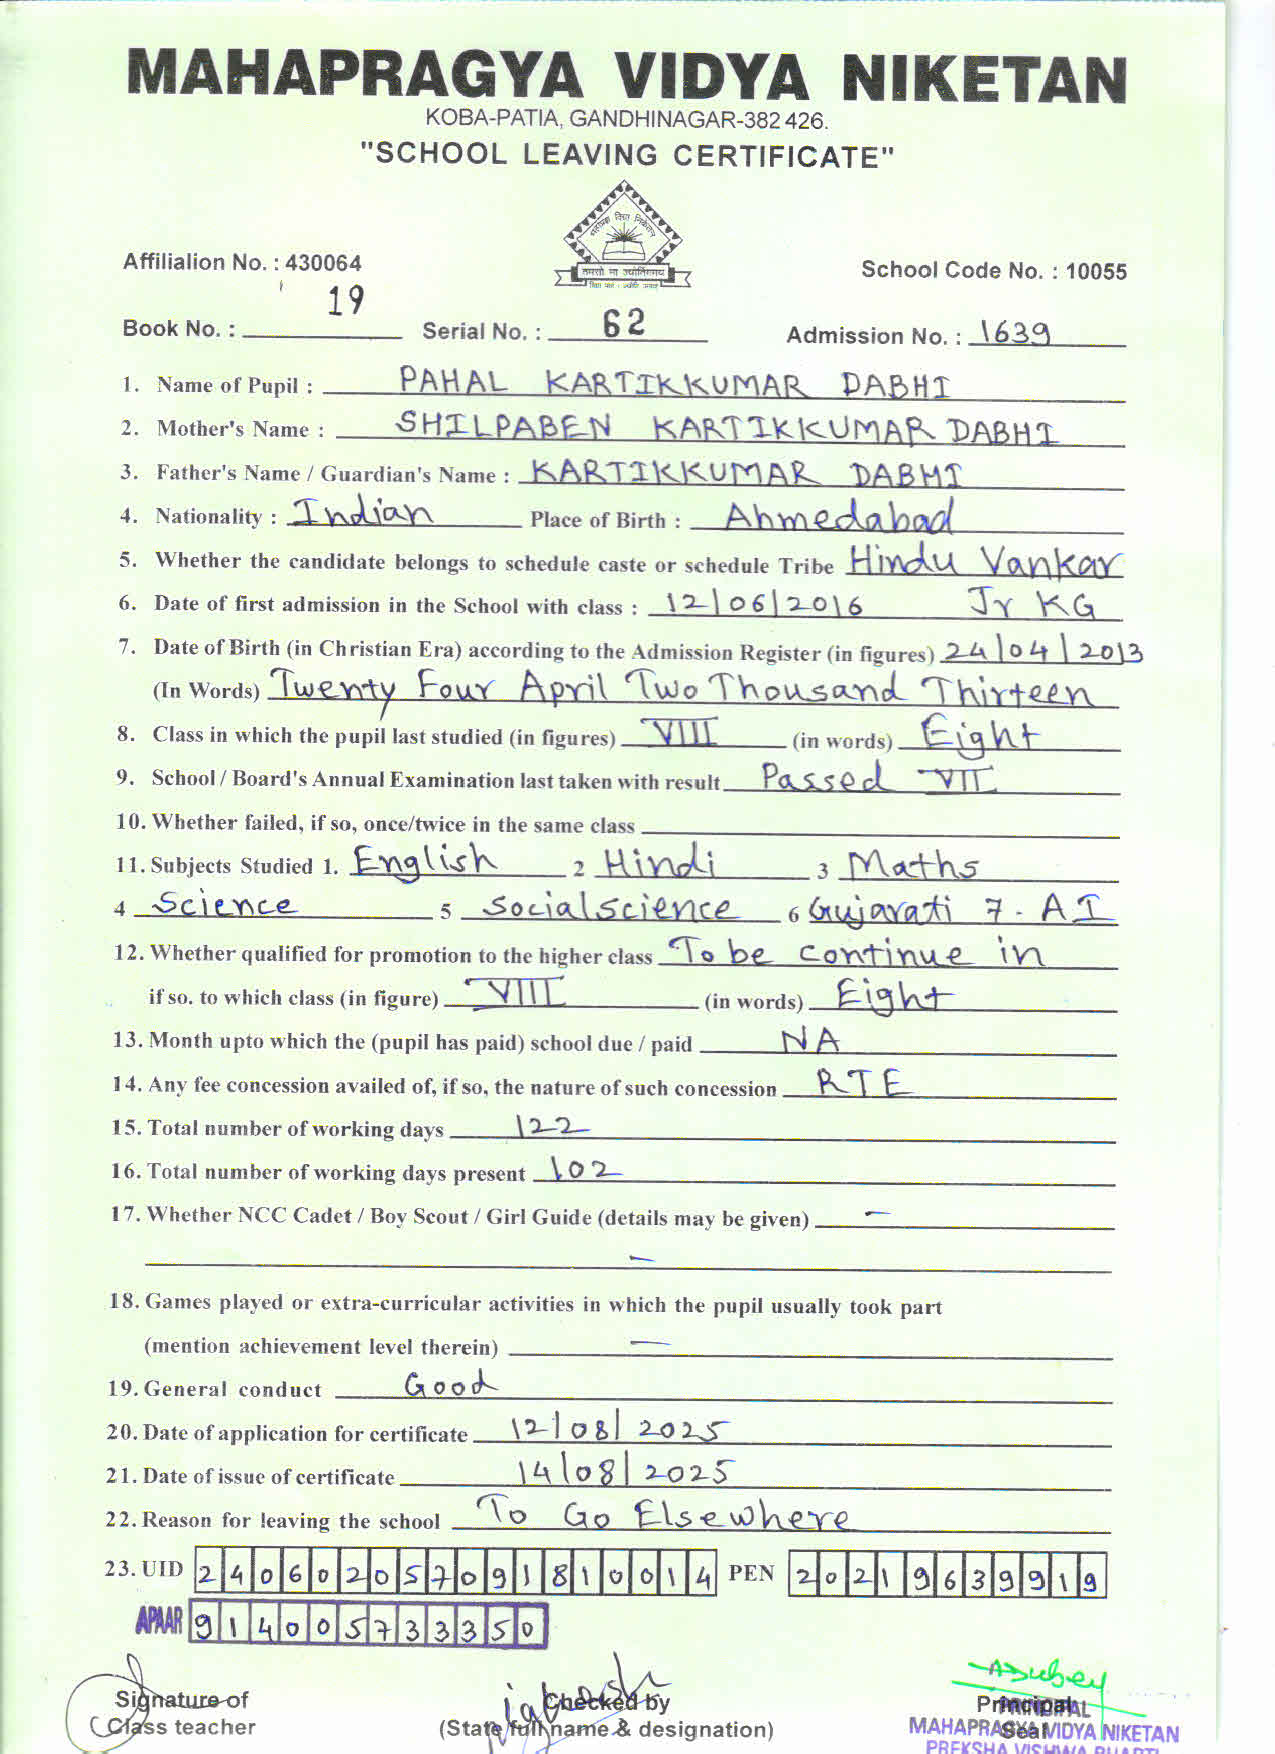 MAHAPRAGYA VIDYA NIKETAN
KOBA-PATIA, GANDHINAGAR-382 426.
"SCHOOL LEAVING CERTIFICATE"
महाप्रज्ञ विद्या निकेतन
तमसो मा ज्योतिर्गमय
Affilialion No. : 430064
School Code No. : 10055
Book No. : 19 Serial No. : 62 Admission No. : 1639
1. Name of Pupil : PAHAL KARTIKKUMAR DABHI
2. Mother's Name : SHILPABEN KARTIKKUMAR DABHI
3. Father's Name / Guardian's Name : KARTIKKUMAR DABHI
4. Nationality : Indian Place of Birth : Ahmedabad
5. Whether the candidate belongs to schedule caste or schedule Tribe Hindu Vankar
6. Date of first admission in the School with class : 12/06/2016 Jr KG
7. Date of Birth (in Christian Era) according to the Admission Register (in figures) 24/04/2013
(In Words) Twenty Four April Two Thousand Thirteen
8. Class in which the pupil last studied (in figures) VIII (in words) Eight
9. School / Board's Annual Examination last taken with result Passed VII
10. Whether failed, if so, once/twice in the same class
11. Subjects Studied 1. English 2 Hindi 3 Maths
4 Science 5 Socialscience 6 Gujarati 7. AI
12. Whether qualified for promotion to the higher class To be continue in
if so. to which class (in figure) VIII (in words) Eight
13. Month upto which the (pupil has paid) school due / paid NA
14. Any fee concession availed of, if so, the nature of such concession RTE
15. Total number of working days 122
16. Total number of working days present 102
17. Whether NCC Cadet / Boy Scout / Girl Guide (details may be given) -
-
18. Games played or extra-curricular activities in which the pupil usually took part
(mention achievement level therein) -
19. General conduct Good
20. Date of application for certificate 12/08/2025
21. Date of issue of certificate 14/08/2025
22. Reason for leaving the school To Go Elsewhere
23. UID 240602057091810014 PEN 20219639919
APAAR 914005733350
Signature of
Class teacher
Checked by
(State full name & designation)
ADubey
Principal
Seal
PRINCIPAL
MAHAPRAGYA VIDYA NIKETAN
PREKSHA VISHWA BHARTI